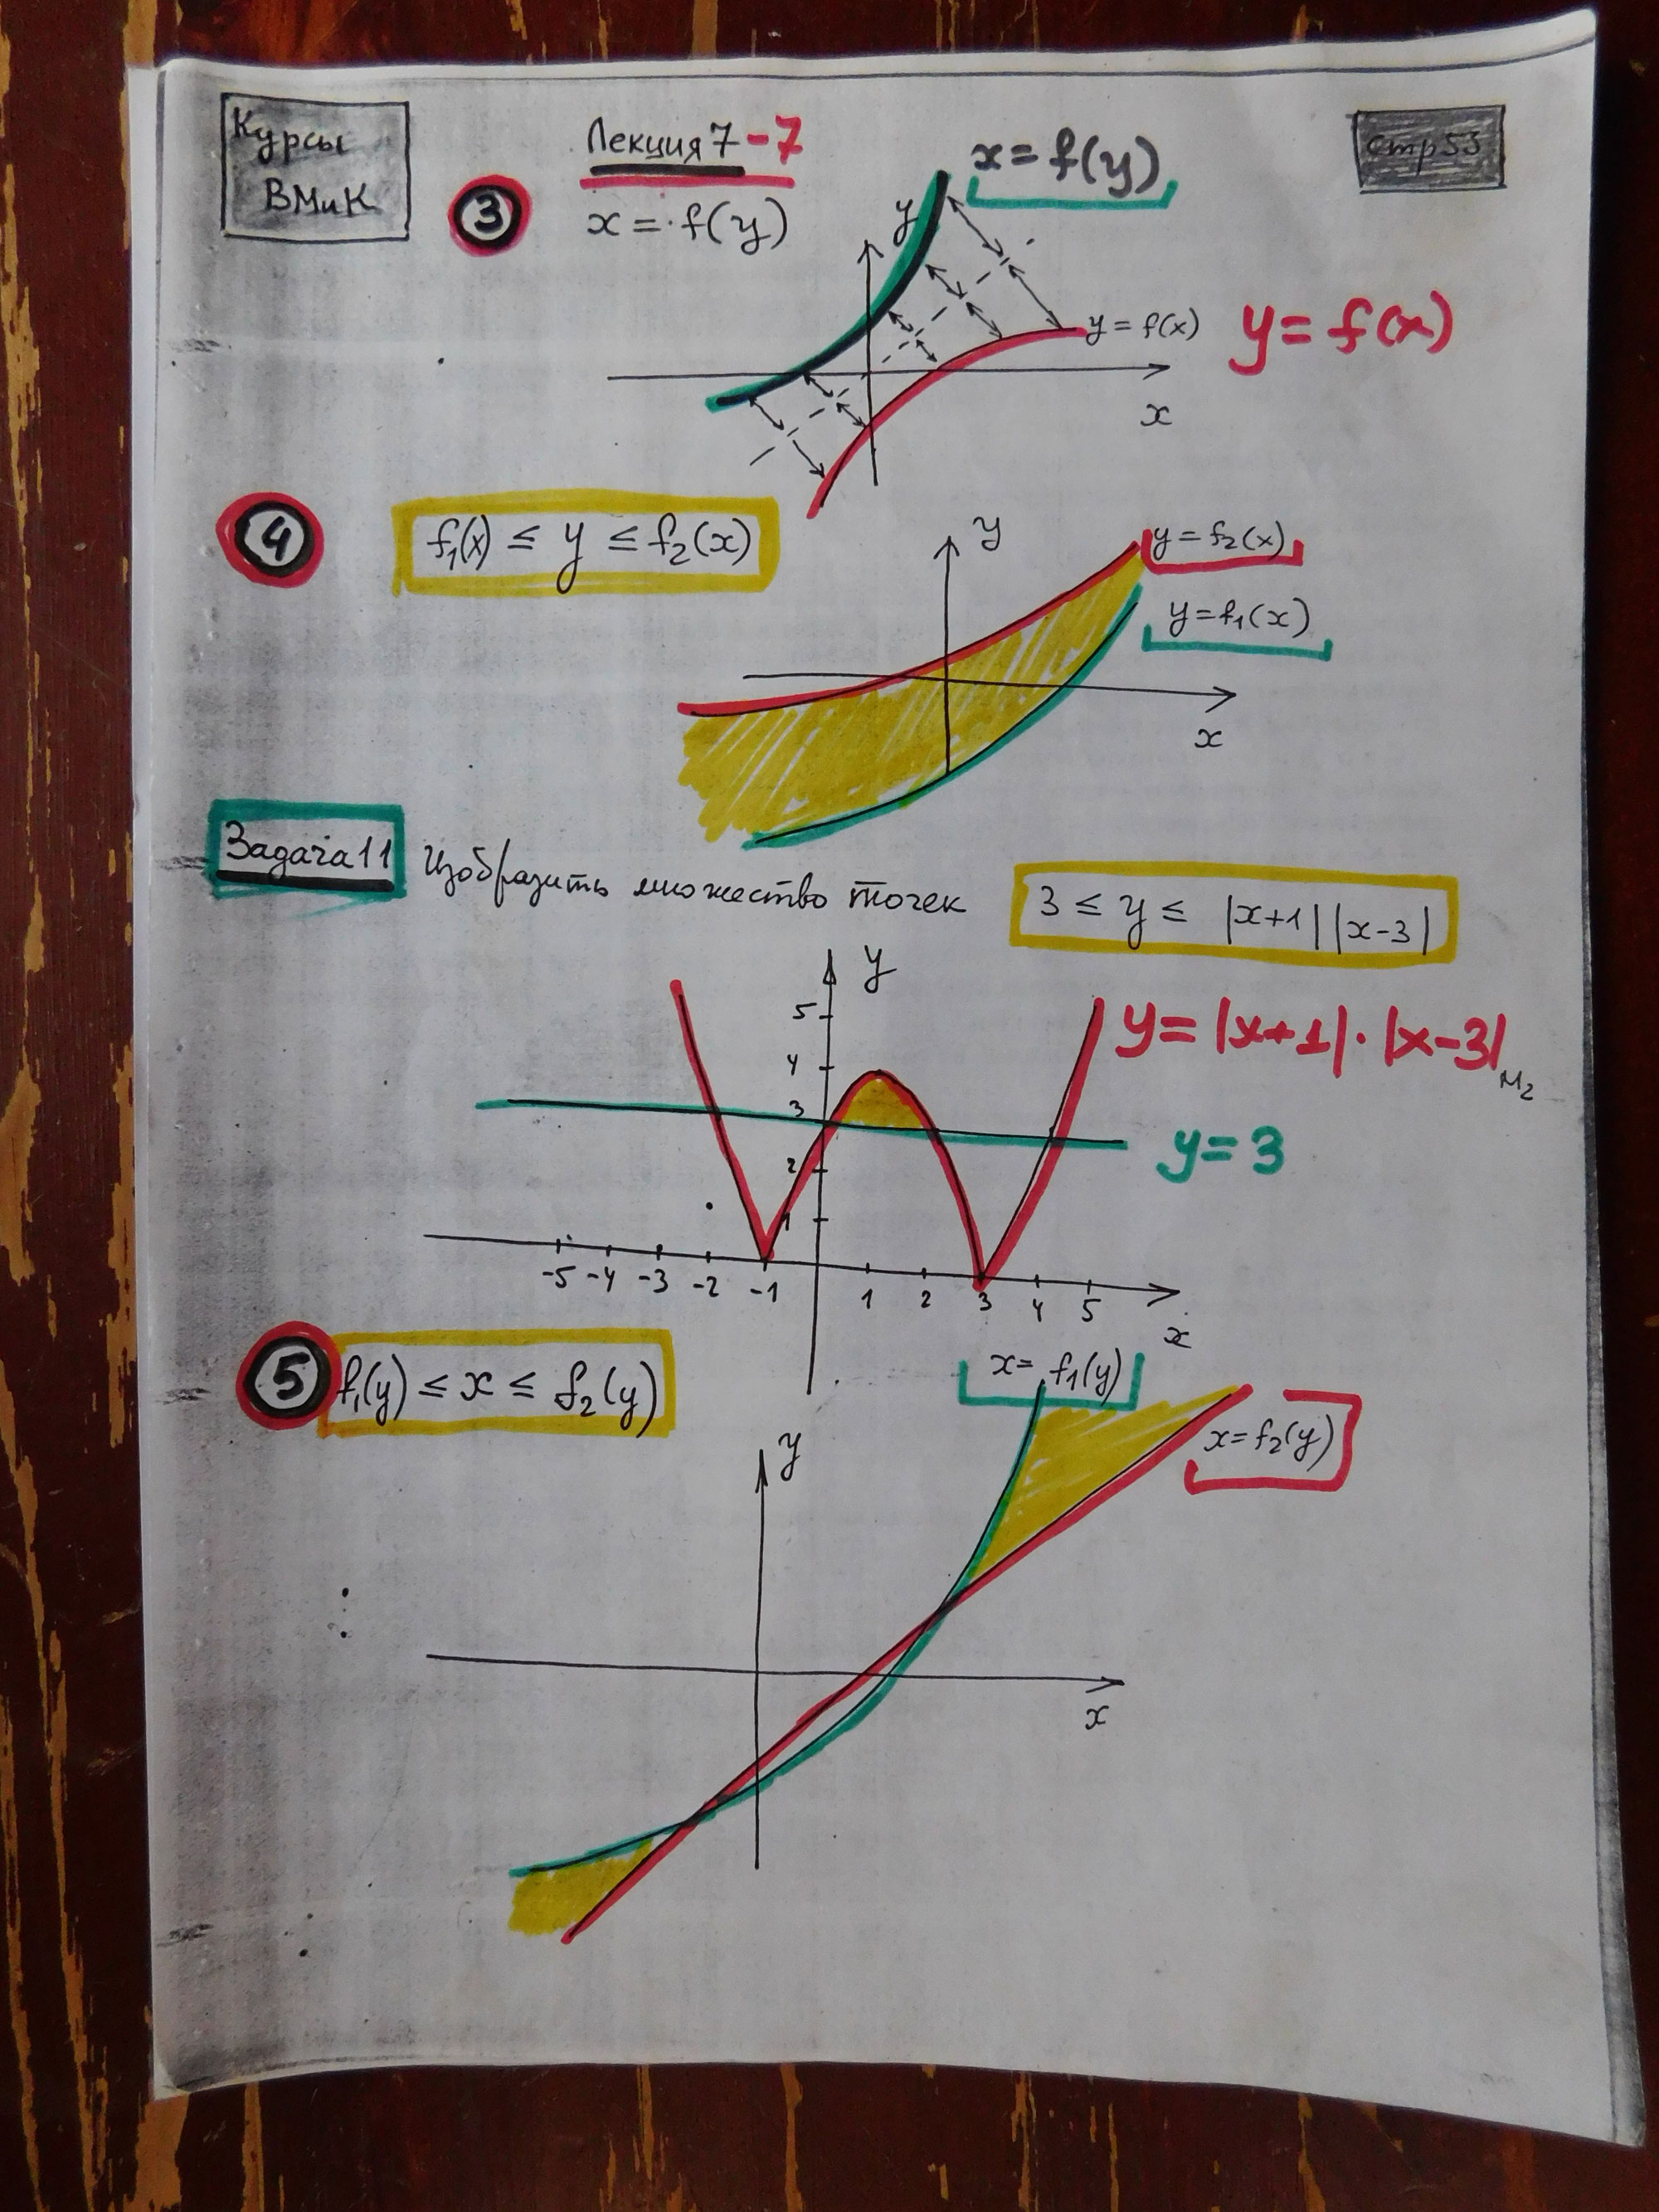 Курсы
ВМиК
Лекция 7-7
Стр 53
3
x = f(y)
x = f(y)
y
y = f(x)
y = f(x)
x
4
f₁(x) ≤ y ≤ f₂(x)
y
y = f₂(x)
y = f₁(x)
x
Задача 11 Изобразить множество точек 3 ≤ y ≤ |x+1||x-3|
y
5
4
3
2
1
y = |x+1|·|x-3|
M₂
y = 3
-5 -4 -3 -2 -1 1 2 3 4 5
x
5
f₁(y) ≤ x ≤ f₂(y)
x = f₁(y)
x = f₂(y)
y
x